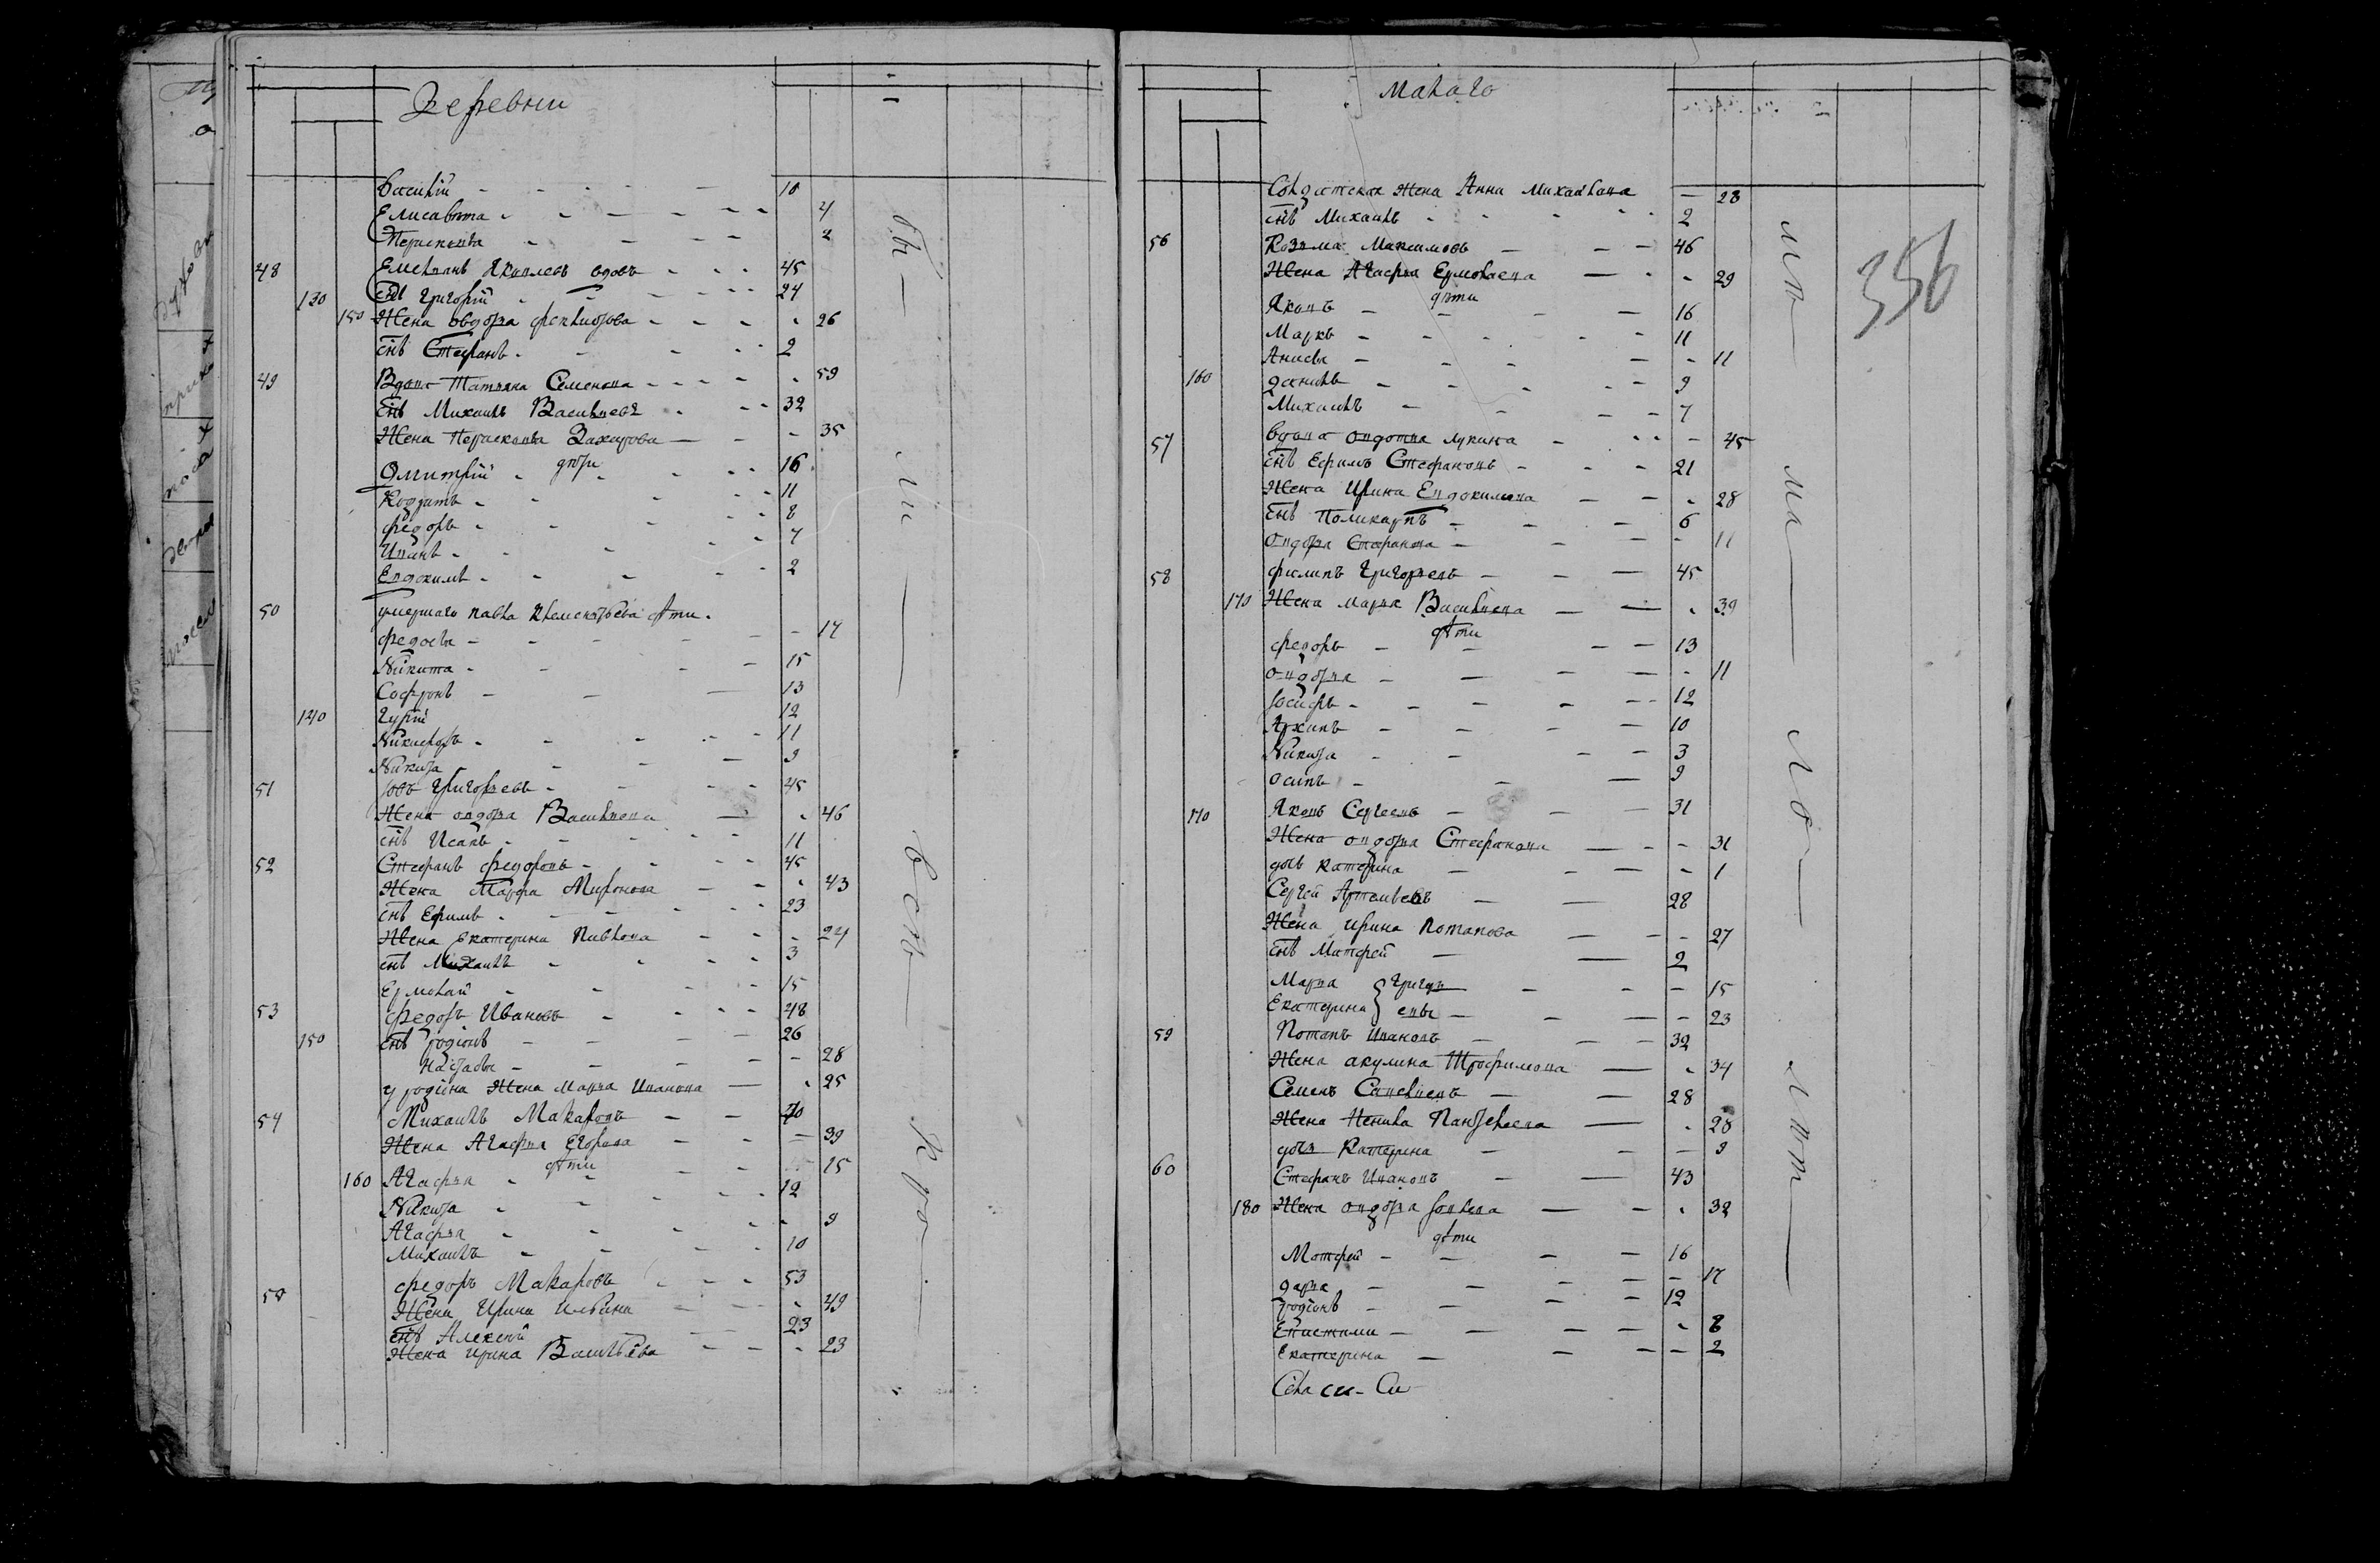 Деревни
Василій 10
Елисавѣта 4
Перасковья 2
48 Емельянъ Яковлевъ вдовъ 45
130 снъ Григорій 24
150 Жена овдотья 26
снъ Стефанъ 2
49 Вдова Татьяна Семенова 59
снъ Михаилъ Васильевъ 32
Жена Перасковья Захарова 35
дѣти
Дмитрій 16
Кодратъ 11
федоръ 8
Иванъ 7
Евдокимъ 2
50 умершаго павла Клементьева дѣти
федосья 17
Никита 15
Софронъ 13
140 Гурій 12
Никифоръ 11
Никита 9
51 Іовъ Григорьевъ 45
Жена овдотья Васильева 46
снъ Исакъ 11
52 Стефанъ федоровъ 45
Жена Марфа Миронова 43
снъ Ефимъ 23
Жена Екатерина Павлова 24
снъ Михаилъ 3
Ермолай 15
53 федоръ Ивановъ 48
150 снъ родіонъ 26
28
у родіона Жена Марья Иванова 25
54 Михаилъ Макаровъ 40
Жена Агафья Егорова 39
дѣти
160 Агафья 15
Никита 12
Агафья 9
Михаилъ 10
федоръ Макаровъ 53
Жена Ирина Ильина 49
снъ Алексѣй 23
Жена Ирина Васильева 23
бы ли вси кро
малаго
Солдатская Жена Анна Михайлова 28
снъ Михаилъ 2
56 Козьма Максимовъ 46
Жена Агафья Ермолаева 29
дѣти
Яковъ 16
Марко 11
Анисья 11
160 данилъ 9
Михаилъ 7
57 вдова овдотья лукина 45
снъ Ефимъ Стефановъ 21
Жена Ирина Евдокимова 28
снъ Поликарпъ 6
овдотья Стефанова 11
58 филипъ Григорьевъ 45
170 Жена марья Васильева 39
дѣти
федоръ 13
овдотья 11
Іосифъ 12
Архипъ 10
Никита 3
осипъ 9
170 Яковъ Сергеевъ 31
Жена овдотья Стефанова 31
дочь катерина 1
Сергей 28
Жена Ирина Потапова 27
снъ Матфей 2
Марья 15
Екатерина 23
59 Потапъ Ивановъ 32
Жена акулина Трофимова 34
Семенъ Савельевъ 28
Жена Ненила 28
дочь Катерина 9
60 Стефанъ Ивановъ 43
180 Жена овдотья Іовлева 32
дѣти
Матфей 16
дарья 17
родіонъ 12
Епистими 8
Екатерина 2
мѣ ма ло лѣт
356